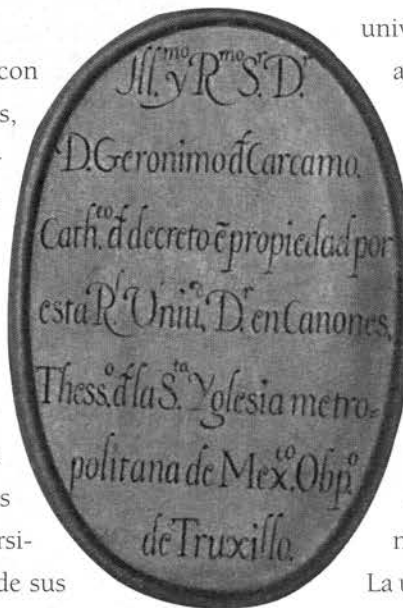 con
s,
s
rsi-
de sus
Jll.ᵐᵒ y Rᵐᵒ S.ʳ D.ʳ
D. Geronimo đ Carcamo.
Cath.ᶜᵒ đ decreto ē propiedad por
esta R.ˡ Uniu. D.ʳ en Canones,
Thess.ᵒ đ la S.ᵗᵃ Yglesia metro=
politana de Mex.ᶜᵒ Obp.ᵒ
de Truxillo.
univ
a
n
La u